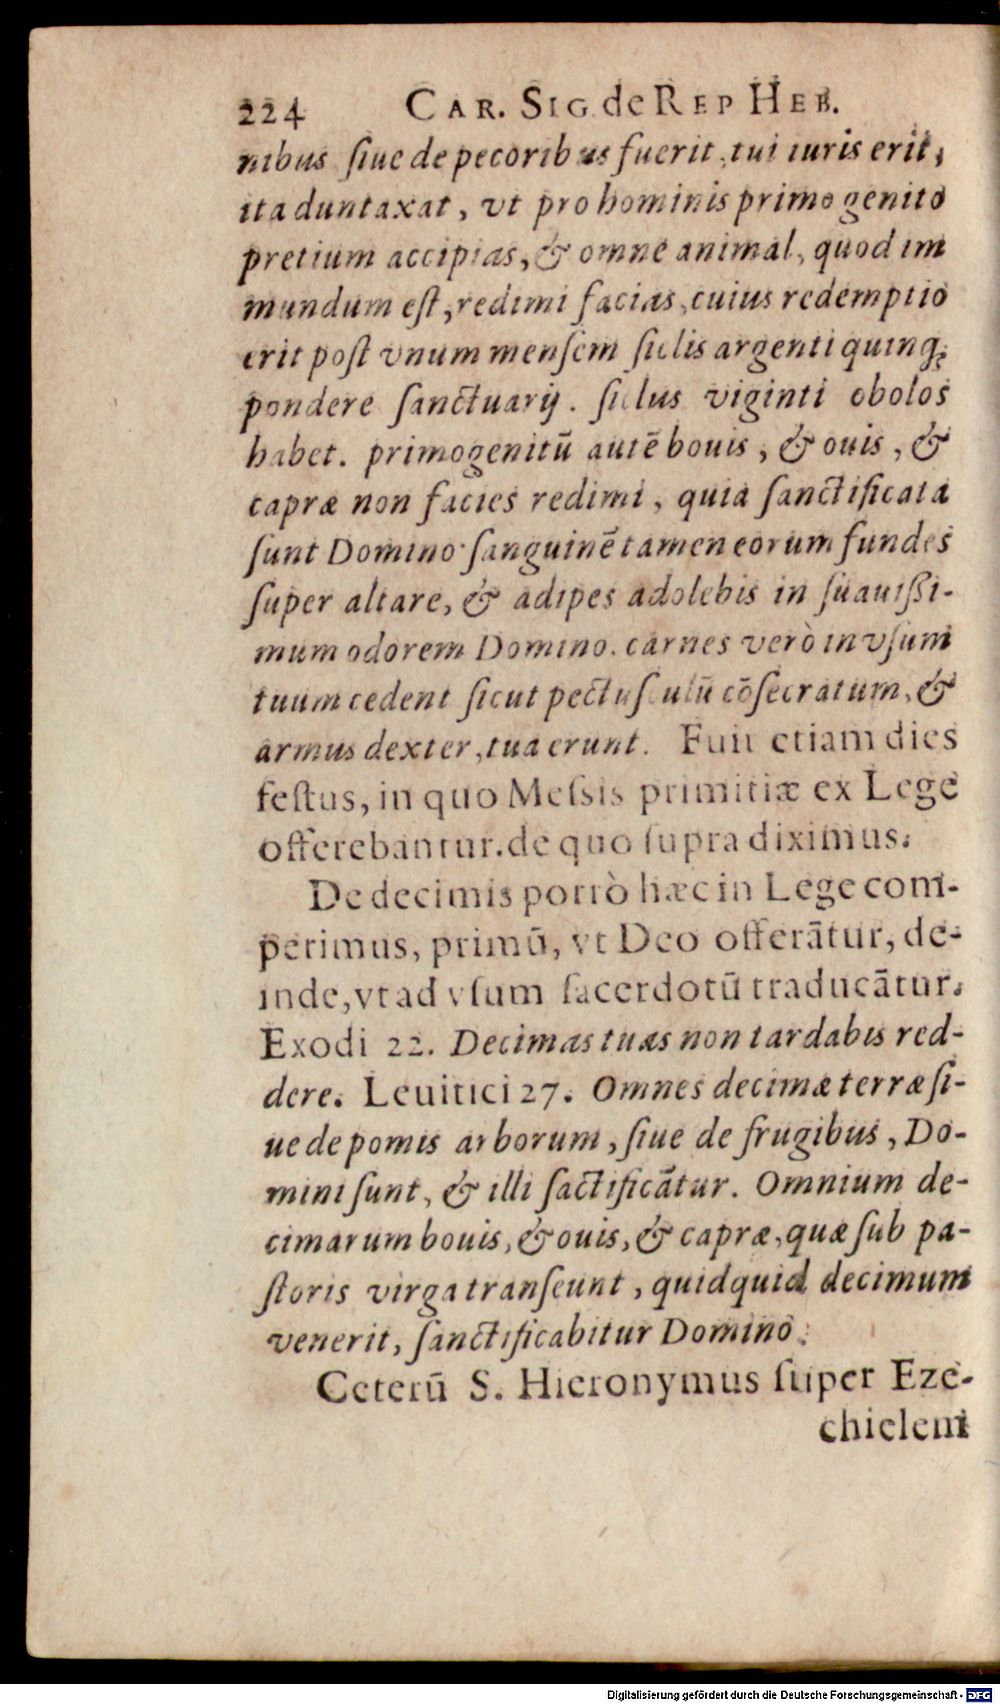 224 CAR. SIG. de REP HEB.
nibus ſiue de pecoribus fuerit, tui iuris erit,
ita duntaxat, vt pro hominis primogenito
pretium accipias, & omne animal, quod im
mundum eſt, redimi facias, cuius redemptio
erit poſt vnum menſem ſiclis argenti quinq;
pondere ſanctuarij. ſiclus viginti obolos
habet. primogenitū autē bouis, & ouis, &
capræ non facies redimi, quia ſanctificata
ſunt Domino. ſanguinē tamen eorum fundes
ſuper altare, & adipes adolebis in ſuauißi-
mum odorem Domino. carnes verò in vſum
tuum cedent ſicut pectuſculū cōſecratum, &
armus dexter, tua erunt. Fuit etiam dies
feſtus, in quo Meſsis primitiæ ex Lege
offerebantur. de quo ſupra diximus.
De decimis porrò hæc in Lege com-
perimus, primū, vt Deo offerātur, de-
inde, vt ad vſum ſacerdotū traducātur.
Exodi 22. Decimas tuas non tardabis red-
dere. Leuitici 27. Omnes decimæ terræ ſi-
ue de pomis arborum, ſiue de frugibus, Do-
mini ſunt, & illi ſactificātur. Omnium de-
cimarum bouis, & ouis, & capræ, quæ ſub pa-
ſtoris virga tranſeunt, quidquid decimum
venerit, ſanctificabitur Domino.
Ceterū S. Hieronymus ſuper Eze-
chielem
Digitalisierung gefördert durch die Deutsche Forschungsgemeinschaft - DFG